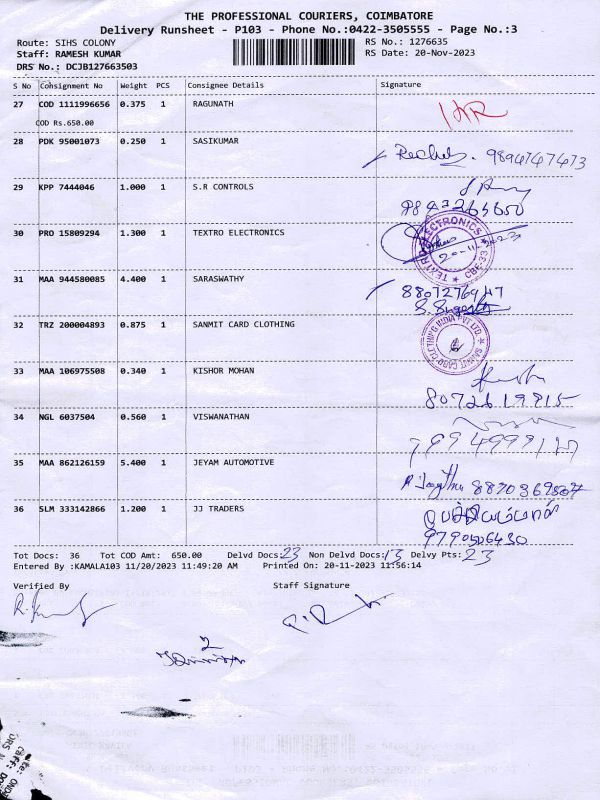 THE PROFESSIONAL COURIERS, COIMBATORE
Delivery Runsheet - P103 - Phone No.:0422-3505555 - Page No.:3
Route: SIHS COLONY
RS No.: 1276635
Staff: RAMESH KUMAR
RS Date: 20-Nov-2023
DRS No.: DCJB127663503
S No Consignment No Weight PCS Consignee Details Signature
27 COD 1111996656 0.375 1 RAGUNATH
COD Rs.650.00
28 PDK 95001073 0.250 1 SASIKUMAR
9894747473
29 KPP 7444046 1.000 1 S.R CONTROLS
30 PRO 15809294 1.300 1 TEXTRO ELECTRONICS
TEXTRO ELECTRONICS CBE-33
20-11-2023
31 MAA 944580085 4.400 1 SARASWATHY
32 TRZ 200004893 0.875 1 SANMIT CARD CLOTHING
SANMIT CARD CLOTHING INDIA PVT LTD
33 MAA 106975508 0.340 1 KISHOR MOHAN
8072619815
34 NGL 6037504 0.560 1 VISWANATHAN
35 MAA 862126159 5.400 1 JEYAM AUTOMOTIVE
36 SLM 333142866 1.200 1 JJ TRADERS
Tot Docs: 36 Tot COD Amt: 650.00 Delvd Docs:23 Non Delvd Docs:13 Delvy Pts:23
Entered By :KAMALA103 11/20/2023 11:49:20 AM Printed On: 20-11-2023 11:56:14
Verified By Staff Signature
2